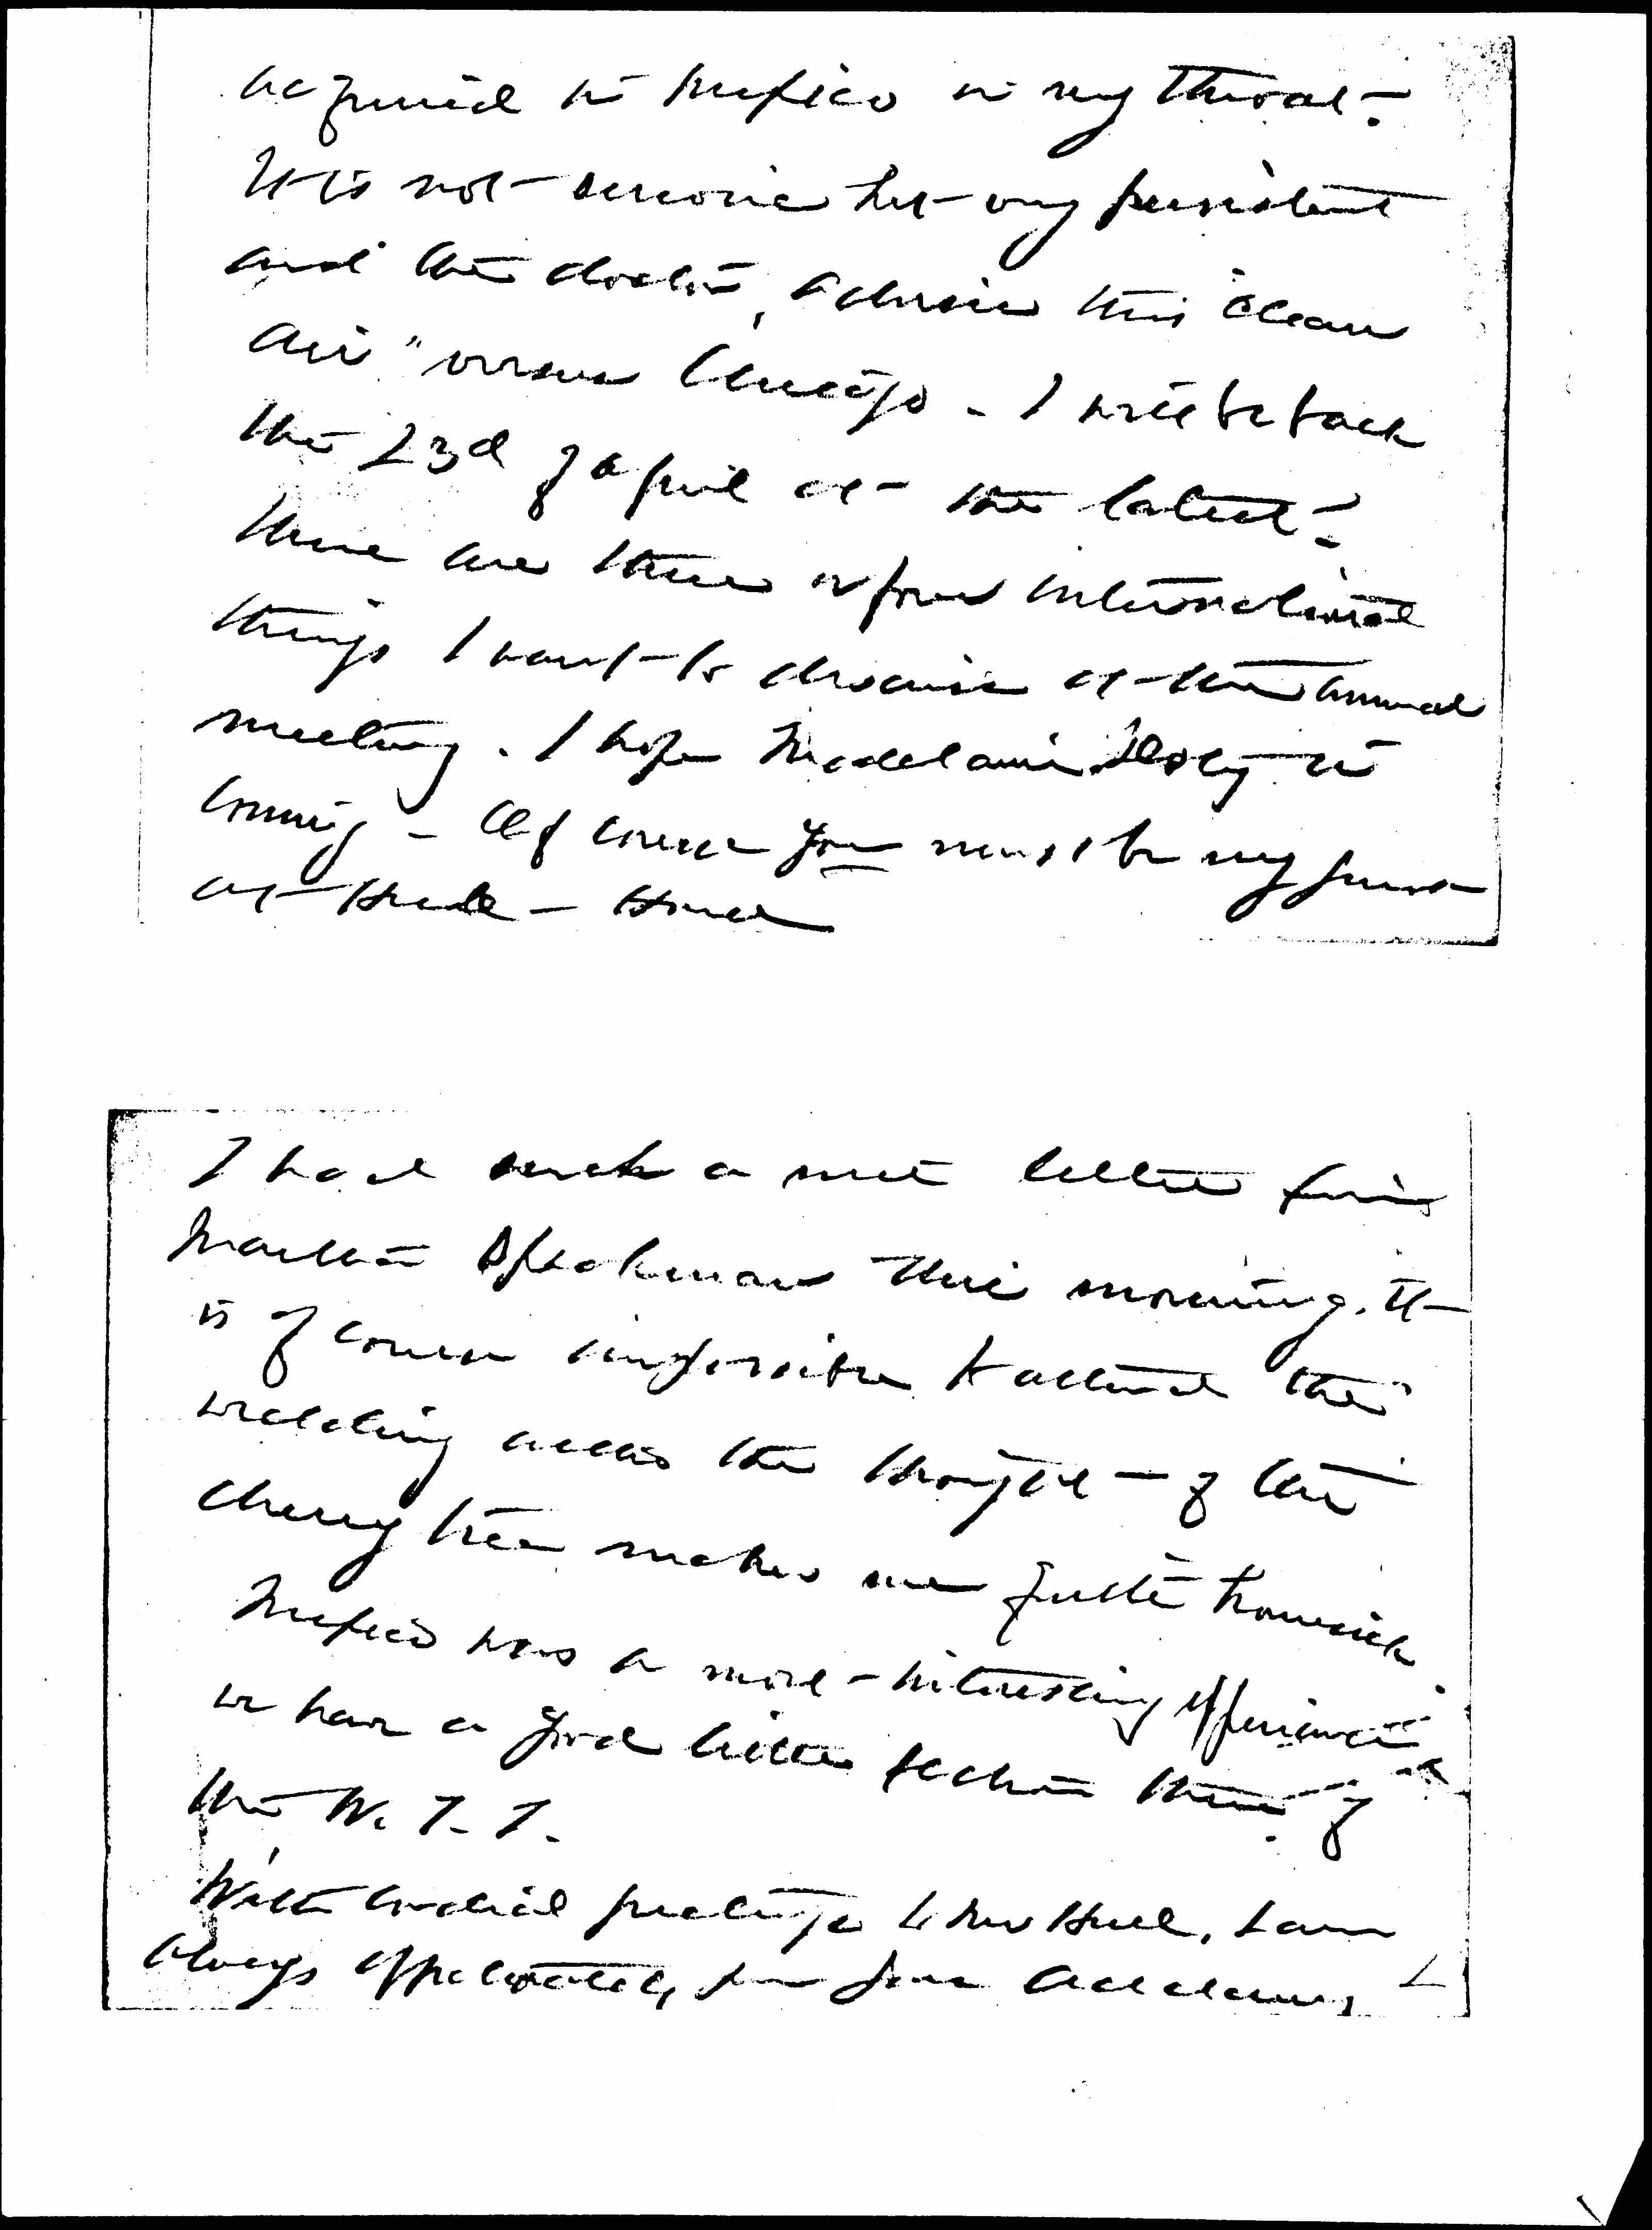 acquired in Mexico in my throat -
It is not serious but very persistent
and the doctors advise this "clean
air" versus Chicago - I will be back
the 23d of April at the latest -
There are three or four international
things I want to discuss at the annual
meeting. I hope Madelaine Doty is
coming - Of course you must be my guest
at Hull-House
I had such a nice letter from
Martha Speakman this morning. It
is of course impossible to attend the
wedding altho the thought of the
cherry tree makes me quite homesick
Mexico was a most interesting experience
we have a good little section there of
the W. I. L.
With cordial greetings to Mrs Hull, I am
always affectionately yours Jane Addams